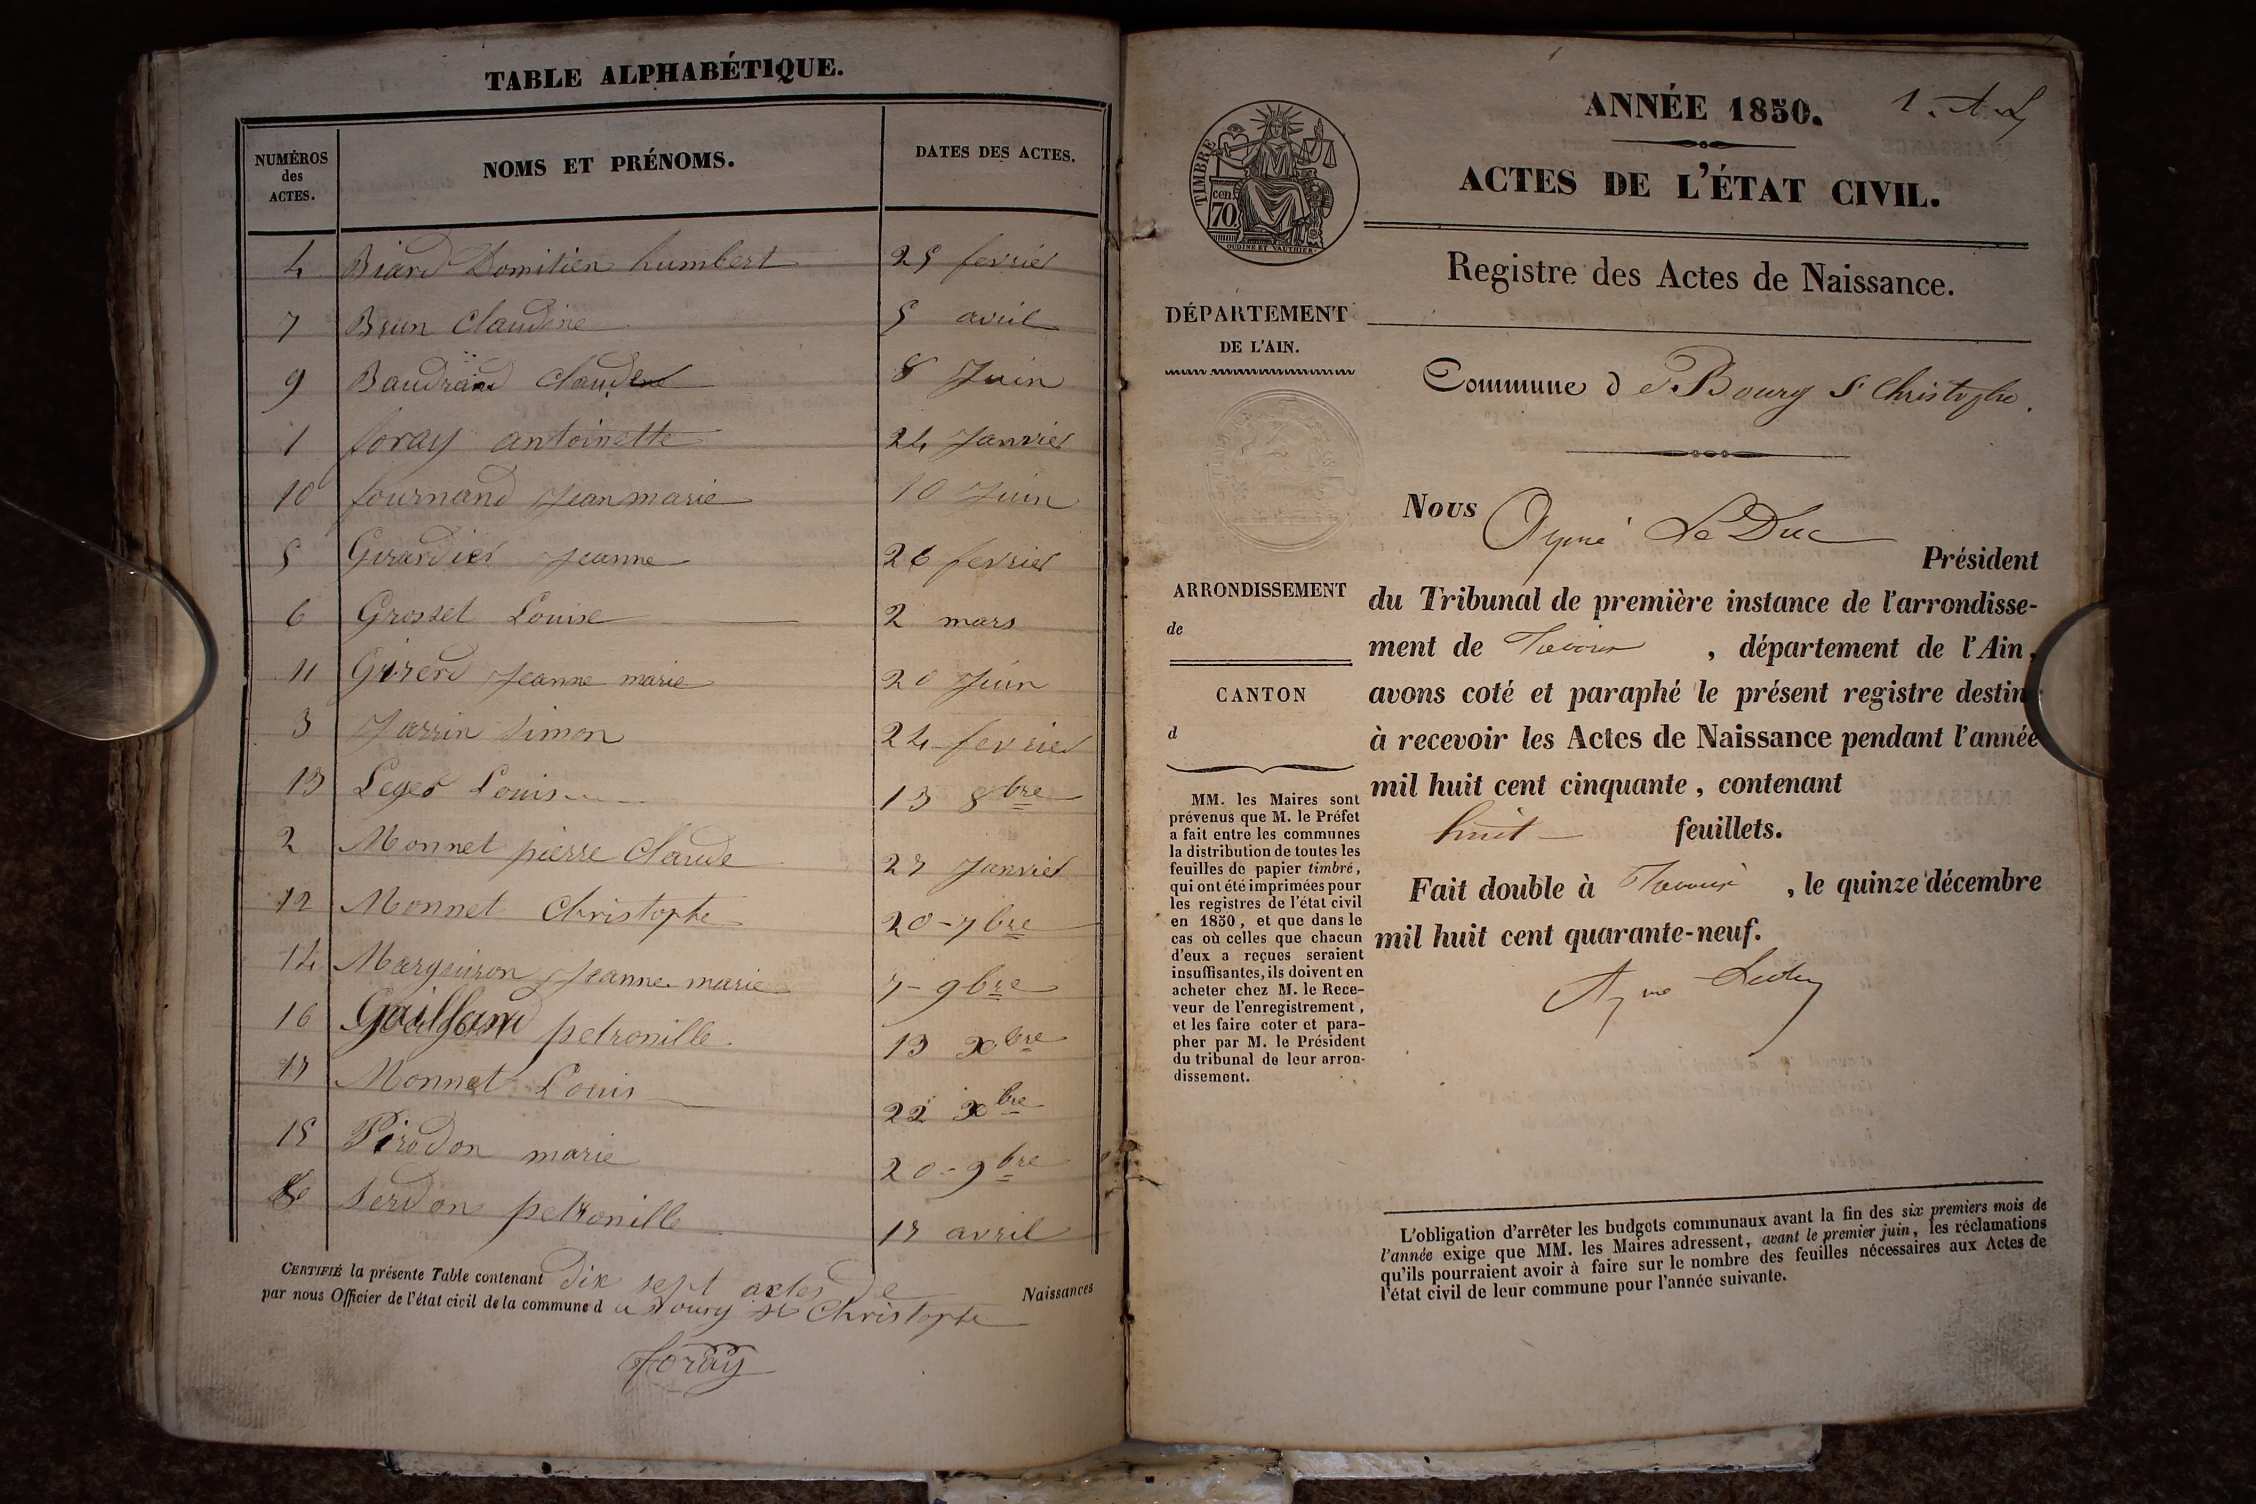 TABLE ALPHABÉTIQUE.
NUMÉROS des ACTES. NOMS ET PRÉNOMS. DATES DES ACTES.
4 Biard Domitien humbert 25 fevrier
7 Brun Claudine 5 avril
9 Baudrand Claude 8 Juin
1 foray antoinette 24 Janvier
10 fournand Jean marie 10 Juin
5 Girardier Jeanne 26 fevrier
6 Grosset Louise 2 mars
11 Girerd Jeanne marie 20 Juin
3 Jarrin Simon 24 fevrier
13 Leger Louis 13 8bre
2 Monnet pierre Claude 27 Janvier
12 Monnet Christophe 20 - 7bre
14 Marguiron Jeanne marie 7 - 9bre
16 Gailland petronille 13 xbre
17 Monnet Louis 22 xbre
15 Pirodon marie 20 - 9bre
8 Serdon petronille 17 avril
CERTIFIÉ la présente Table contenant dix sept actes de Naissances
par nous Officier de l'état civil de la commune d e Bourg St Christophe
foray
1. A. L
ANNÉE 1850.
ACTES DE L'ÉTAT CIVIL.
TIMBRE
70 cen.
OUDINE ET VAUTHIER
Registre des Actes de Naissance.
DÉPARTEMENT
DE L'AIN.
Commune d e Bourg St Christophe.
Nous Aymé Le Duc Président
du Tribunal de première instance de l'arrondisse-
ment de Trévoux, département de l'Ain,
avons coté et paraphé le présent registre destiné
à recevoir les Actes de Naissance pendant l'année
mil huit cent cinquante, contenant
huit feuillets.
Fait double à Trévoux, le quinze décembre
mil huit cent quarante-neuf.
Aymé Leduc
ARRONDISSEMENT
de
CANTON
d
MM. les Maires sont
prévenus que M. le Préfet
a fait entre les communes
la distribution de toutes les
feuilles de papier timbré,
qui ont été imprimées pour
les registres de l'état civil
en 1850, et que dans le
cas où celles que chacun
d'eux a reçues seraient
insuffisantes, ils doivent en
acheter chez M. le Rece-
veur de l'enregistrement,
et les faire coter et para-
pher par M. le Président
du tribunal de leur arron-
dissement.
L'obligation d'arrêter les budgets communaux avant la fin des six premiers mois de
l'année exige que MM. les Maires adressent, avant le premier juin, les réclamations
qu'ils pourraient avoir à faire sur le nombre des feuilles nécessaires aux Actes de
l'état civil de leur commune pour l'année suivante.